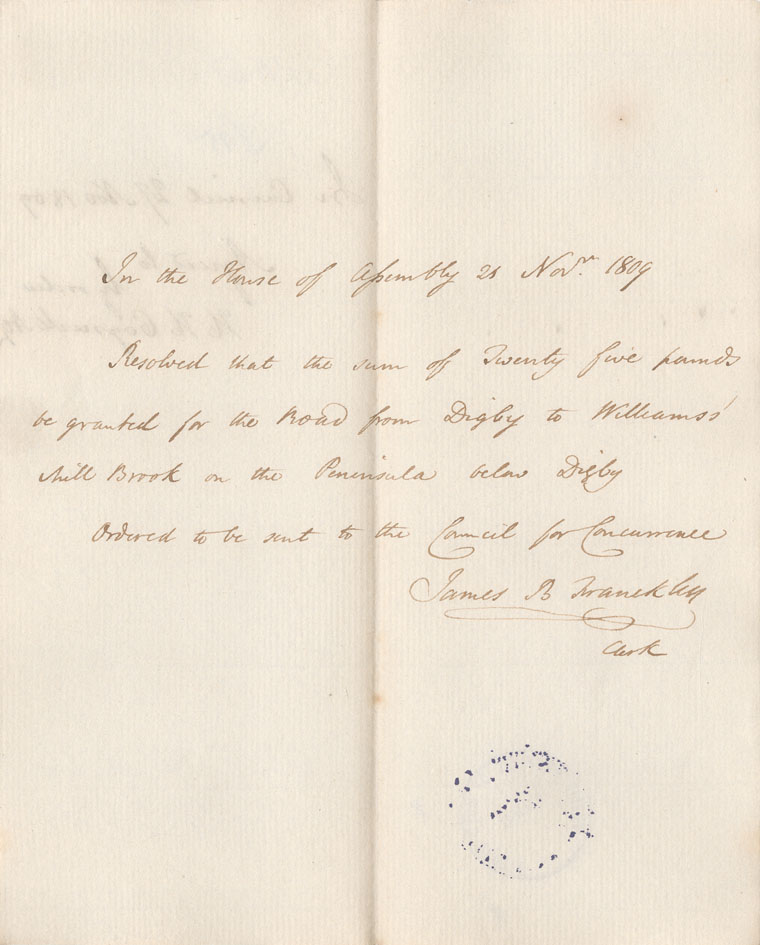 In the House of Assembly 21 Novr. 1809
Resolved that the sum of Twenty five pounds
be granted for the Road from Digby to Williams's
Mill Brook on the Peninsula below Digby
Ordered to be sent to the Council for Concurrence
James B Franckley
Clerk
In Council 27 Nov 1809
Agreed to